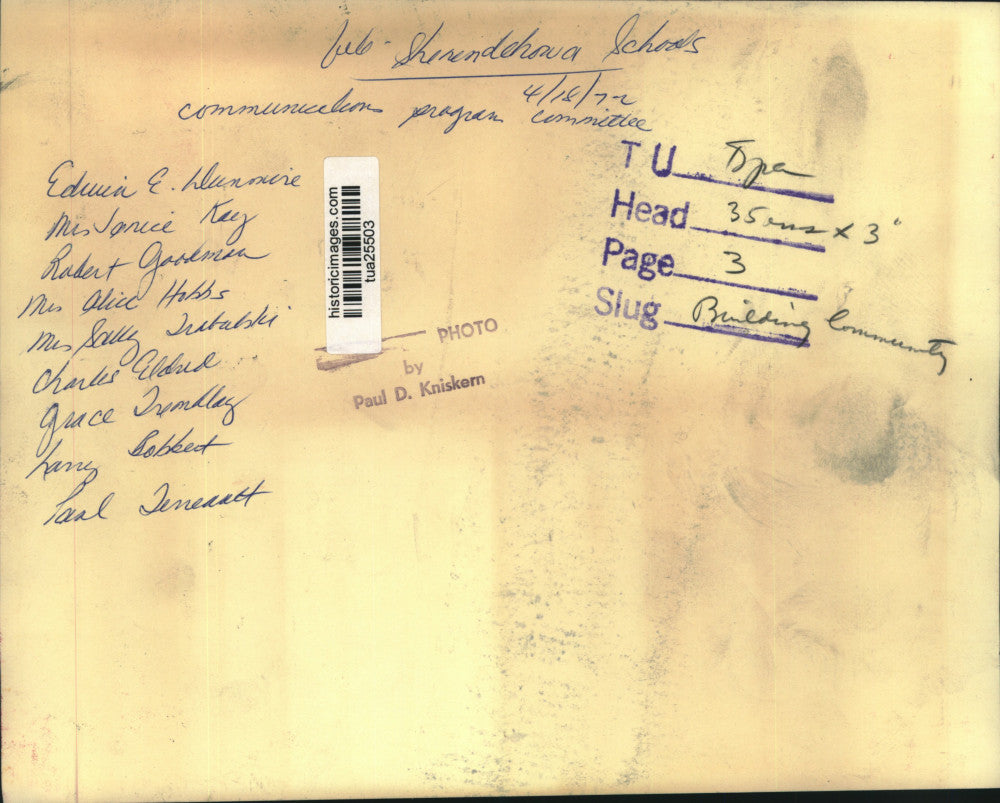 Shenendehowa Schools
4/18/72
communications program committee
Edwin E. Dunmire
Mrs Janice Kay
Robert Goodman
Mrs Alice Hobbs
Mrs Sally
Charles Eldred
Grace Tremblay
Larry
Paul
historicimages.com
tua25503
PHOTO
by
Paul D. Kniskern
TU
Head 35 ems x 3"
Page 3
Slug Building Community